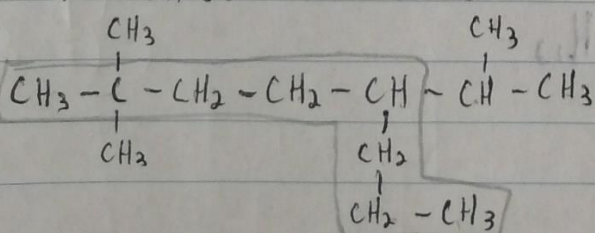 CH3 CH3
CH3 - C - CH2 - CH2 - CH - CH - CH3
CH3 CH2
CH2 - CH3